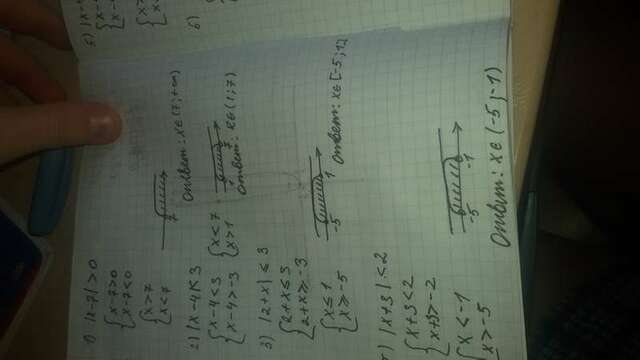 1) |x-7|>0
{x-7>0
{x-7<0
{x>7
{x<7
7
Ответ: x∈(7;+∞)
2) |x-4|<3
{x-4<3
{x-4>-3
{x<7
{x>1
1 7
Ответ: x∈(1;7)
3) |2+x|≤3
{2+x≤3
{2+x≥-3
{x≤1
{x≥-5
-5 1
Ответ: x∈[-5;1]
|x+3|<2
{x+3<2
{x+3>-2
{x<-1
{x>-5
-5 -1
Ответ: x∈(-5;-1)
5)
6)